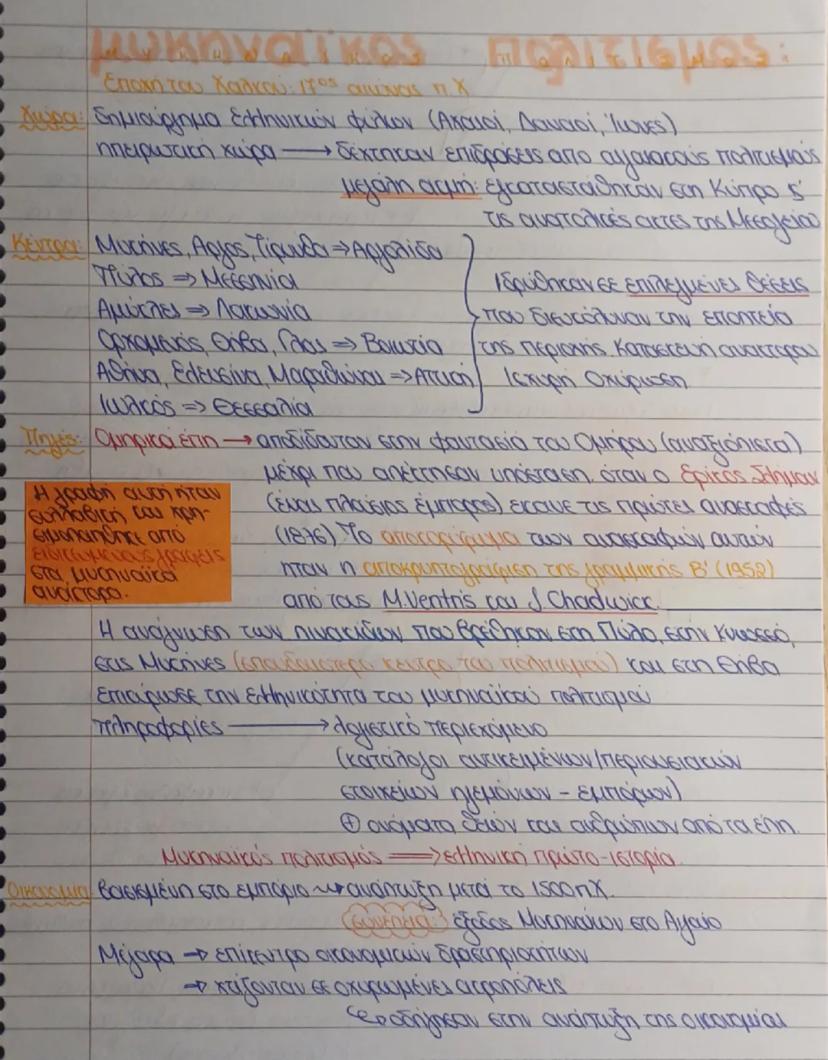 μυκηναϊκός πολιτισμός:
Εποχή του Χαλκού: 17ος αιώνας π.Χ
Χώρα: δημιούργημα ελληνικών φύλων (Αχαιοί, Δαναοί, Ίωνες)
ηπειρωτική χώρα → δέχτηκαν επιδράσεις από αιγαιακούς πολιτισμούς
μεγάλη ακμή: εγκαταστάθηκαν στη Κύπρο &
τις ανατολικές ακτές της Μεσογείου
Κέντρα: Μυκήνες, Άργος, Τίρυνθα ⇒ Αργολίδα
Πύλος ⇒ Μεσσηνία
Αμύκλες ⇒ Λακωνία
Ορχομενός, Θήβα, Γλας ⇒ Βοιωτία
Αθήνα, Ελευσίνα, Μαραθώνα ⇒ Αττική
Ιωλκός ⇒ Θεσσαλία
Ιδρύθηκαν σε επιλεγμένες θέσεις
που διευκόλυναν την εποπτεία
της περιοχής. Κατασκευή ανακτόρου
Ισχυρή Οχύρωση
Πηγές: Ομηρικά έπη → αποδίδονταν στην φαντασία του Ομήρου (αναξιόπιστα)
μέχρι που απέκτησαν υπόσταση, όταν ο Ερίκος Σλήμαν
(ένας πλούσιος έμπορος) έκανε τις πρώτες ανασκαφές
(1876) Το αποκορύφωμα των ανασκαφών αυτών
ήταν η αποκρυπτογράφηση της γραμμικής Β' (1952)
από τους M.Ventris και J.Chadwick.
Η γραφή αυτή ήταν
συλλαβική και χρη-
σιμοποιήθηκε από
ειδικευμένους γραφείς
στα μυκηναϊκά
ανάκτορα.
Η ανάγνωση των πινακίδων που βρέθηκαν στη Πύλο, στην Κνωσσό,
στις Μυκήνες (σπουδαιότερο κέντρο του πολιτισμού) και στη Θήβα
επικύρωσε την ελληνικότητα του μυκηναϊκού πολιτισμού
πληροφορίες → λογιστικό περιεχόμενο
(κατάλογοι αντικειμένων/περιουσιακών
στοιχείων ηγεμόνων - εμπόρων)
⊕ ονόματα θεών και ανθρώπων από τα έπη.
Μυκηναϊκός πολιτισμός ⇒ ελληνική πρώτο-ιστορία
Οικονομία: βασισμένη στο εμπόριο → ανάπτυξη μετά το 1500π.Χ.
συνέπεια: έξοδος Μυκηναίων στο Αιγαίο
Μέγαρα → επίκεντρο οικονομικών δραστηριοτήτων
→ χτίζονταν σε οχυρωμένες ακροπόλεις
↳ οδήγησαν στην ανάπτυξη της οικονομίας